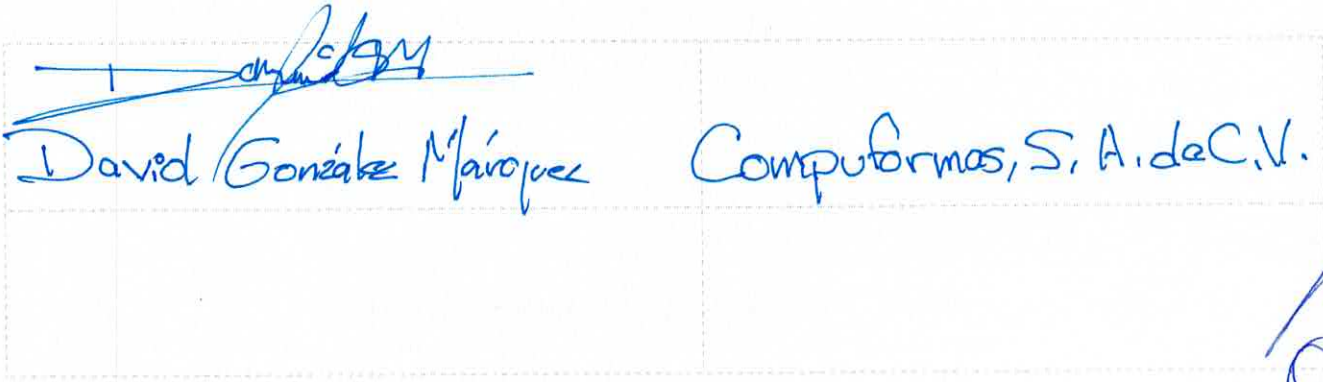 David González Márquez
Compuformas, S. A. de C. V.